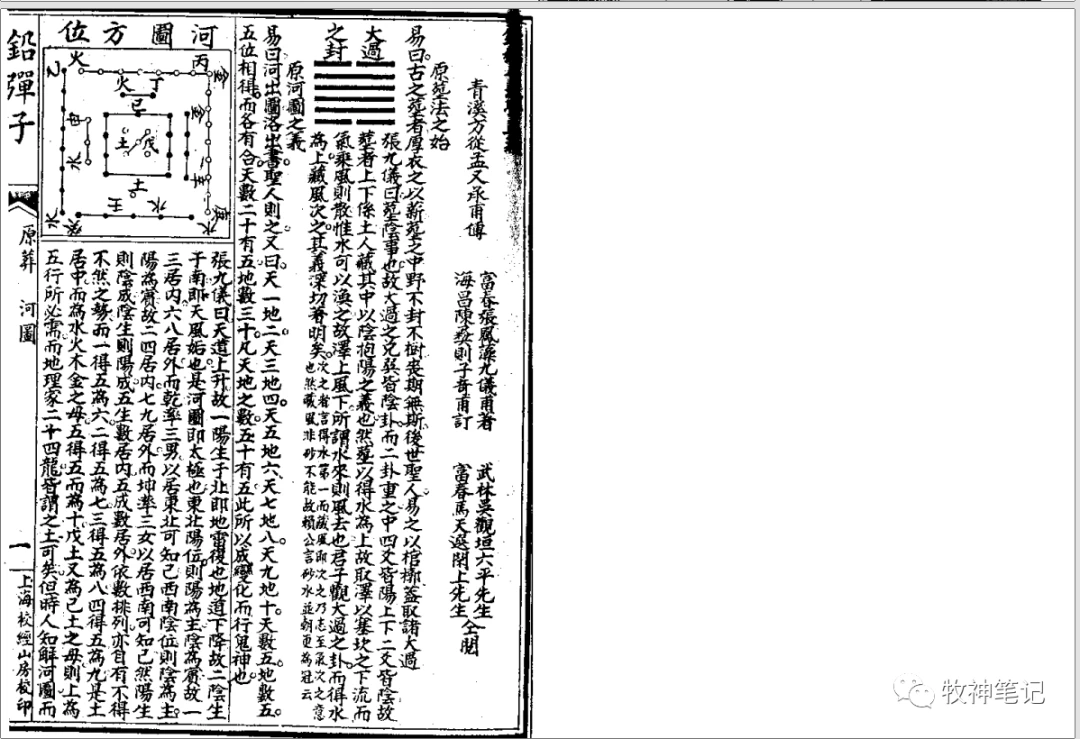 青溪方從孟又承甫傳
富春張鳳藻九儀甫著
海昌陳發則子音甫訂
武林吳觀垣六平先生
富春馬天選閑上先生仝閱
原葬法之始
易曰古之葬者厚衣之以薪葬之中野不封不樹喪期無斯後世聖人易之以棺槨蓋取諸大過
大過
之卦
張九儀曰葬陰事也故大過之兌巽皆陰卦而二卦重之中四爻皆陽上下二爻皆陰故
葬者上下係土人藏其中以陰抱陽之義也然葬以得水為上故取澤以塞坎之下流而
氣乘風則散惟水可以渙之故澤上風下所謂水來則風去也君子觀大過之卦而得水
為上藏風次之其義深切著明矣次之者言得水第一而藏風即次之乃志至氣次之意
也然藏風非砂不能故賴公言砂水並朝更為冠云
原河圖之義
易曰河出圖洛出書聖人則之又曰天一地二天三地四天五地六天七地八天九地十天數五地數五
五位相得而各有合天數二十有五地數三十凡天地之數五十有五此所以成變化而行鬼神也
河圖方位
張九儀曰天道上升故一陽生于北即地雷復也地道下降故二陰生
于南即天風姤也是河圖即太極也東北陽位則陽為主陰為賓故一
三居內六八居外而乾率三男以居東北可知已西南陰位則陰為主
陽為賓故二四居內七九居外而坤率三女以居西南可知已然陽生
則陰成陰生則陽成五生數居內五成數居外依數排列亦自有不得
不然之勢而一得五為六二得五為七三得五為八四得五為九是土
居中而為水火木金之母五得五而為十戊土又為己土之母則上為
五行所必需而地理家二十四龍皆謂之土可矣但時人知解河圖而
鉛彈子
原葬 河圖
一
上海校經山房校印
牧神笔记